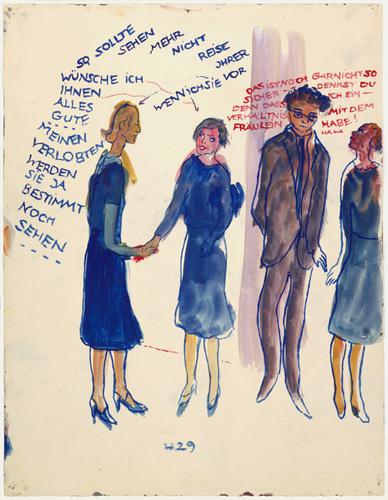 SO SOLLTE
SEHEN MEHR NICHT REISE IHRER
WENN ICH SIE VOR
WÜNSCHE ICH
IHNEN
ALLES
GUTE ----
MEINEN
VERLOBTEN
WERDEN
SIE JA
BESTIMMT
NOCH
SEHEN
----
DAS IST NOCH GARNICHT SO
SICHER – DENKST DU
DENN DASS ICH EIN –
VERHÄLTNIS MIT DEM
FRÄULEIN HABE!
29